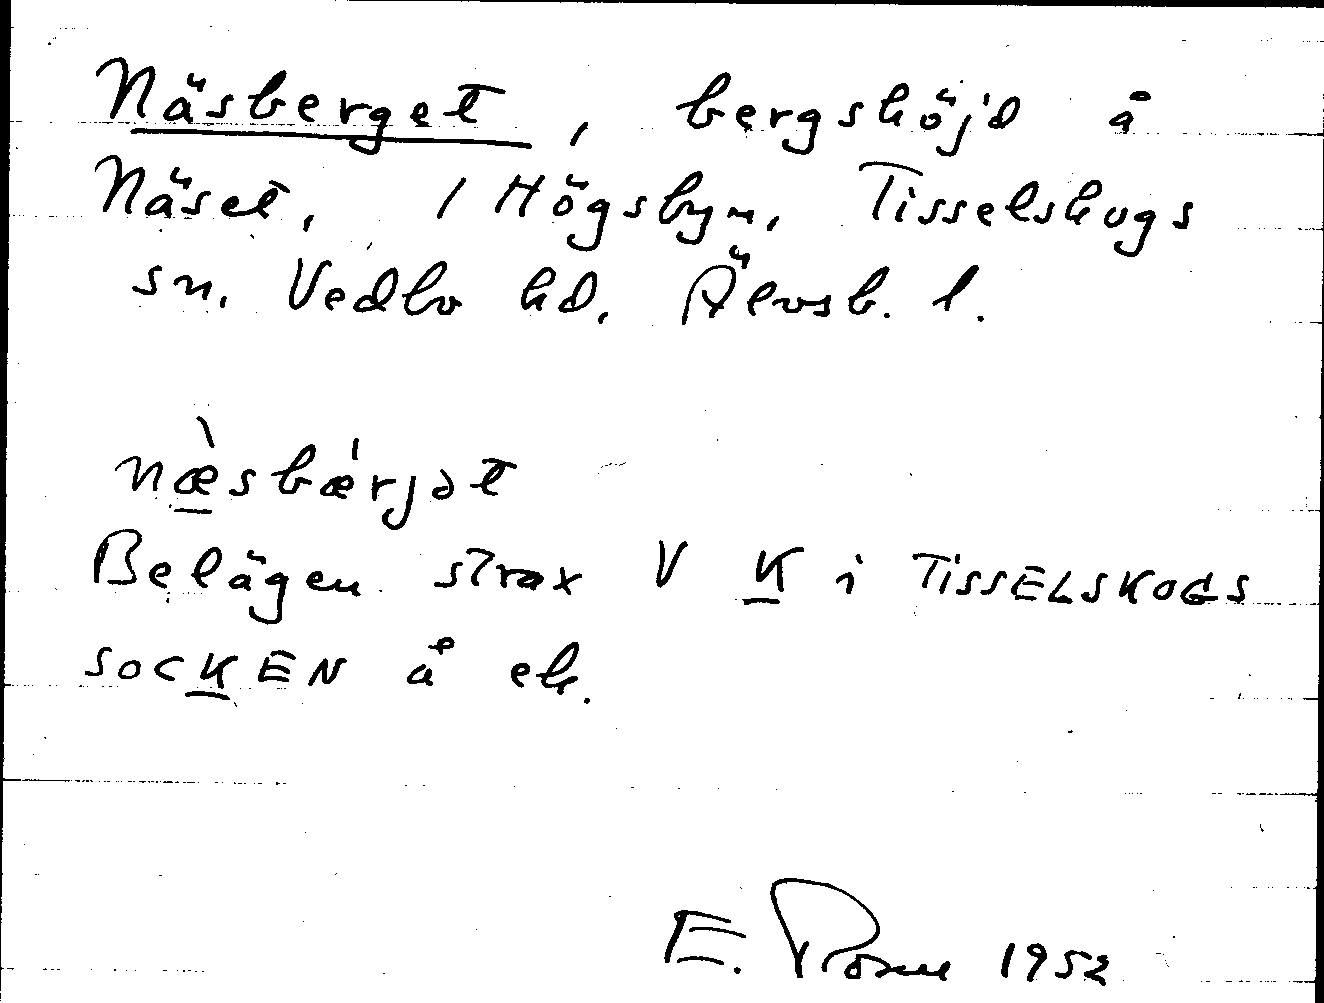 Näsberget, bergshöjd å
Näset, 1 Högsbyn, Tisselskogs
sn. Vedbo hd. Älvsb. l.
næ̀sbæ̍rjət
Belägen strax V K i TISSELSKOGS
SOCKEN å ek.
E. 1952